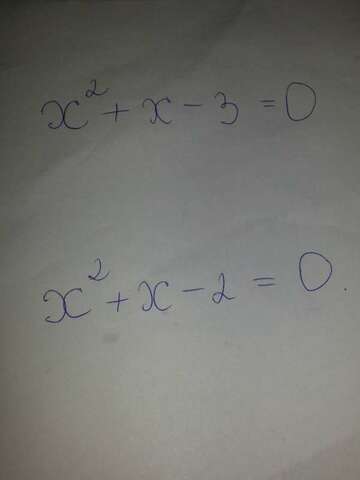 x² + x - 3 = 0
x² + x - 2 = 0.